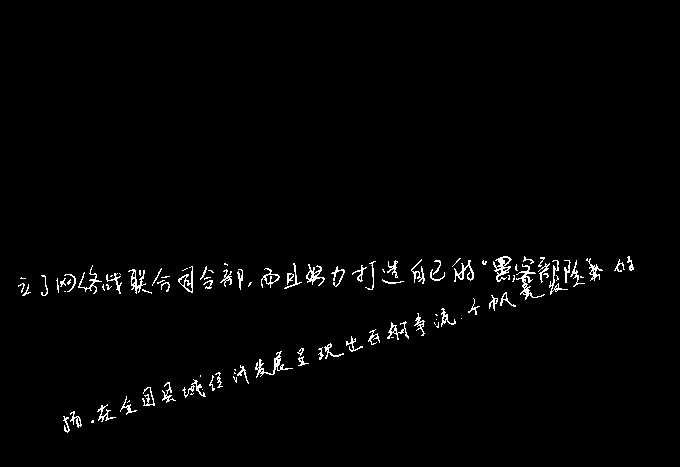 立了网络战联合司令部，而且努力打造自己的“黑客部队
、在全国县域经济发展呈现出百舸争流、千帆竞发 的